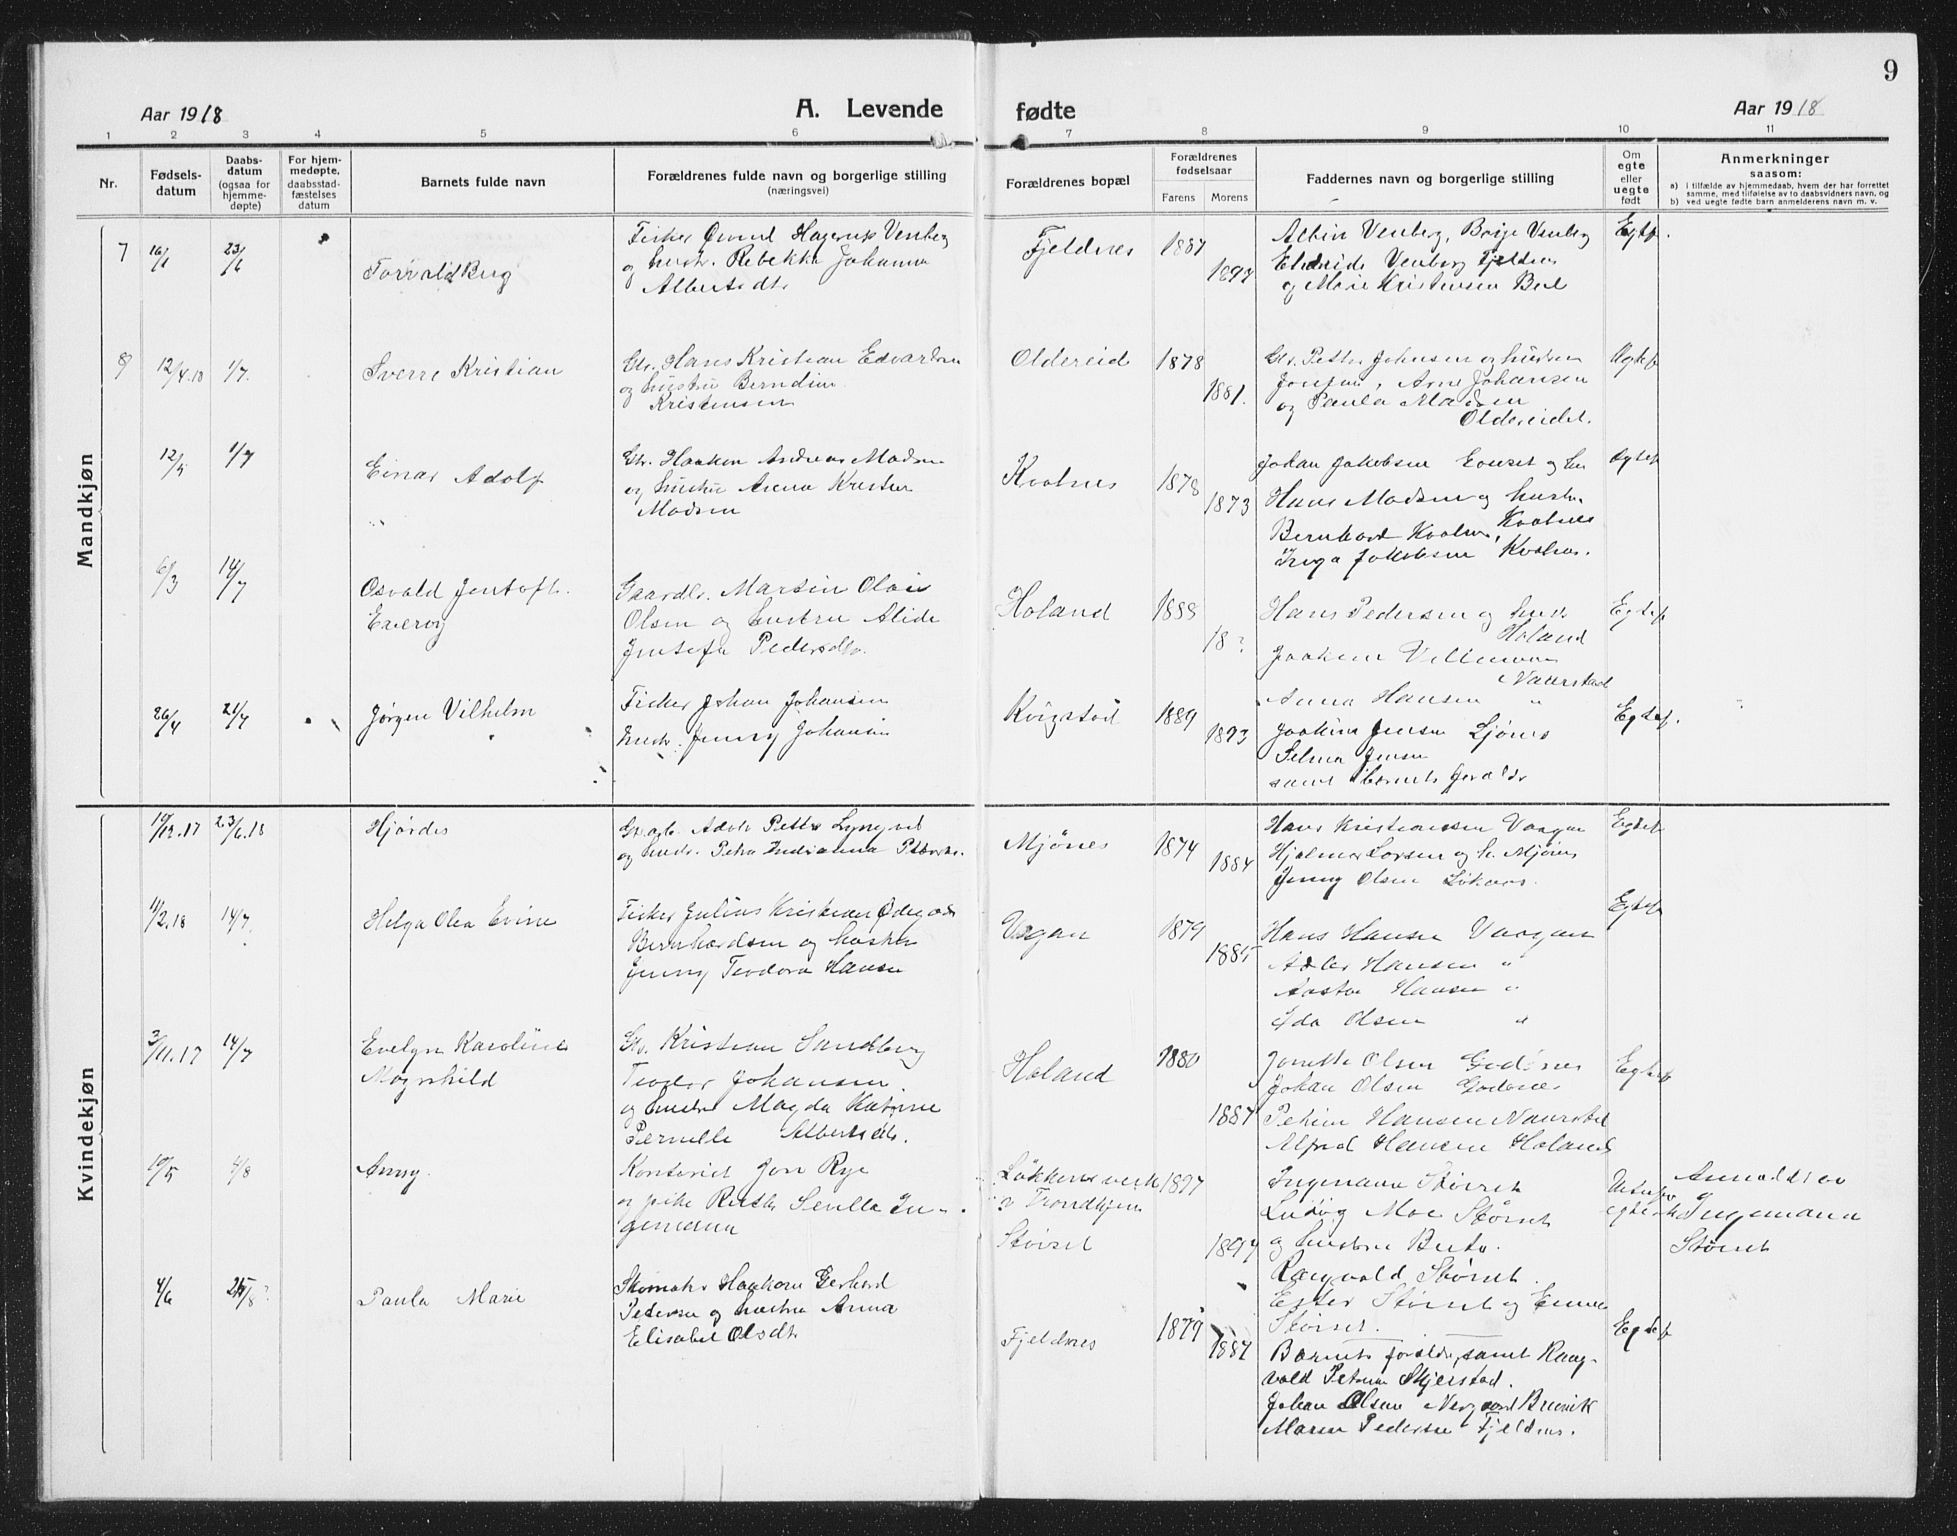 9
Aar 1918
A. Levende fødte
Aar 1918
1 2 3 4 5 6 7 8 9 10 11
Nr.
Fødsels-
datum
Daabs-
datum
(ogsaa for
hjemme-
døpte)
For hjem-
medøpte,
daabsstad-
fæstelses
datum
Barnets fulde navn
Forældrenes fulde navn og borgerlige stilling
(næringsvei)
Forældrenes bopæl
Forældrenes
fødselsaar
Farens Morens
Faddernes navn og borgerlige stilling
Om
egte
eller
uegte
født
Anmerkninger
saasom:
a) i tilfælde av hjemmedaab, hvem der har forrettet
samme, med tilføielse av to daabsvidners navn, og
b) ved uegte fødte barn anmelderens navn m. v.
Mandkjøn
7 23/6
Torvald Berg
Fisker Øvind Hagerup Venberg
og hustr. Rebekka Johanna
Albertsdtr
Fjeldnes 1887
1897
Albin Venberg, Borje Venberg
Venberg Fjeldnes
og Marie Kristensen
Egtef.
8 12/4.18 1/7.
Sverre Kristian
Gbr. Hans Kristian Edvardsen
og hustru Berndine
Kristensen
Oldereid 1878
1881.
Gbr. Petter Johnsen og hustru
Arne Johansen
og Paula Madsen
Oldereidet.
Egtef
12/5 1/7
Einar Adolf
Gbr. Haakon Andreas Madsen
og hustru Anena Kristine
Madsen
Kvalnes 1878
1873
Johan Jakobsen og hu
Hans Madsen og hustru
Kvalnes
Bernhard Kvalnes,
Inga Jakobsen Kvalnes.
Egtef
6/3 14/7
Osvald Jentoft
Gaardbr. Martin Olai
Olsen og hustru Alide
Jentofte Pedersdtr.
Holand 1888
18 ?
Hans Pedersen og hustr
Holand
Joakim
Naurstad
Anna Hansen "
Egtef
26/4 21/7
Jørgen Vilhelm
Fisker Johan Johansen
hustr. Jenny Johansen
Kvigstad 1889
1893
Joakim Jensen Ljønes
Selma Jensen
samt barnets foreldr
Egtef.
Kvindekjøn
19/12.17 23/6.18
Hjørdis
Adolf Petter
og hustr. Petra Indianna
Mjønes 1874
1884
Hans Kristianssen Vaagan
Hjalmar Larsen og h. Mjønes
Jenny Olsen
Egtef
11/2.18 14/7
Helga Olea Evine
Fisker Julius Kristian Ødegaard
Bernhardsen og hustru
Jenny Teodora Hansen
Vagan 1879
1885
Hans Hansen Vaagan
Adler Hansen "
Hansen "
Ida Olsen "
Egtef
3/11.17 14/7
Evelyn Karoline
Magnhild
Gbr. Kristian Sandberg
Teodor Johansen
og hustru Magda Katrine
Pernille Albertsdtr.
Holand 1880
1887
Jonette Olsen Godønes
Johan Olsen Godønes
Petrine Hansen Naurstad
Alfred Hansen Holand
Egtef
19/5 4/8
Anny.
Kontorist Jon Rye
og pike Ruth Sevilla In-
gemann
Løkkens verk
v Trondhjem
Störset
1897
1897
Ingemann Störset
Ludvig Moe Störset
og hustru Berta.
Ragnvald Störset.
Ester Störset og
Störset.
Anmeldt av
Ingemann
Störset
4/6 25/8?
Paula Marie
Skomaker Haakon Gerhard
Pedersen og hustru Anna
Elisabet Olsdtr
Fjeldnes 1879
1887
Barnets foreldre, samt Ragn-
vald Petersen Skjerstad.
Johan Olsen
Maren Pedersen Fjeldnes.
Egtef